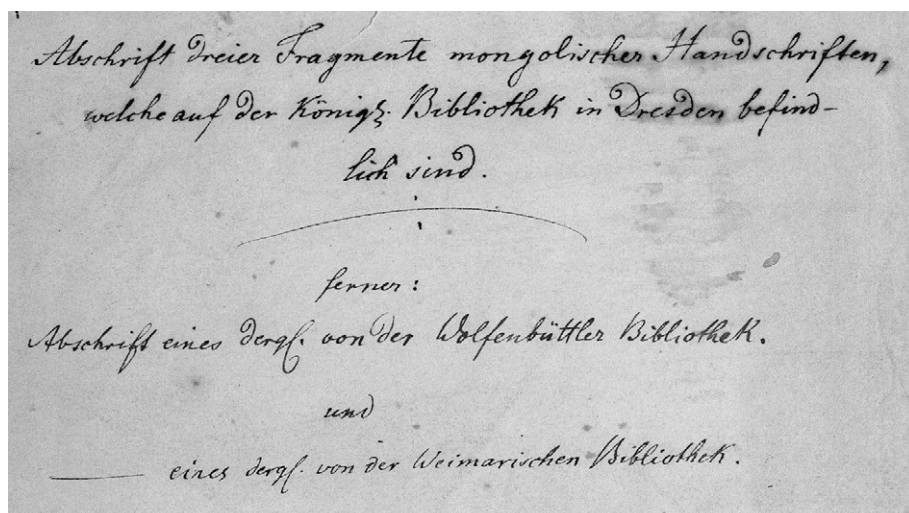 Abschrift dreier Fragmente mongolischer Handschriften,
welche auf der Königl. Bibliothek in Dresden befind-
lich sind.
ferner:
Abschrift eines dergl. von der Wolfenbüttler Bibliothek.
und
—— eines dergl. von der Weimarischen Bibliothek.